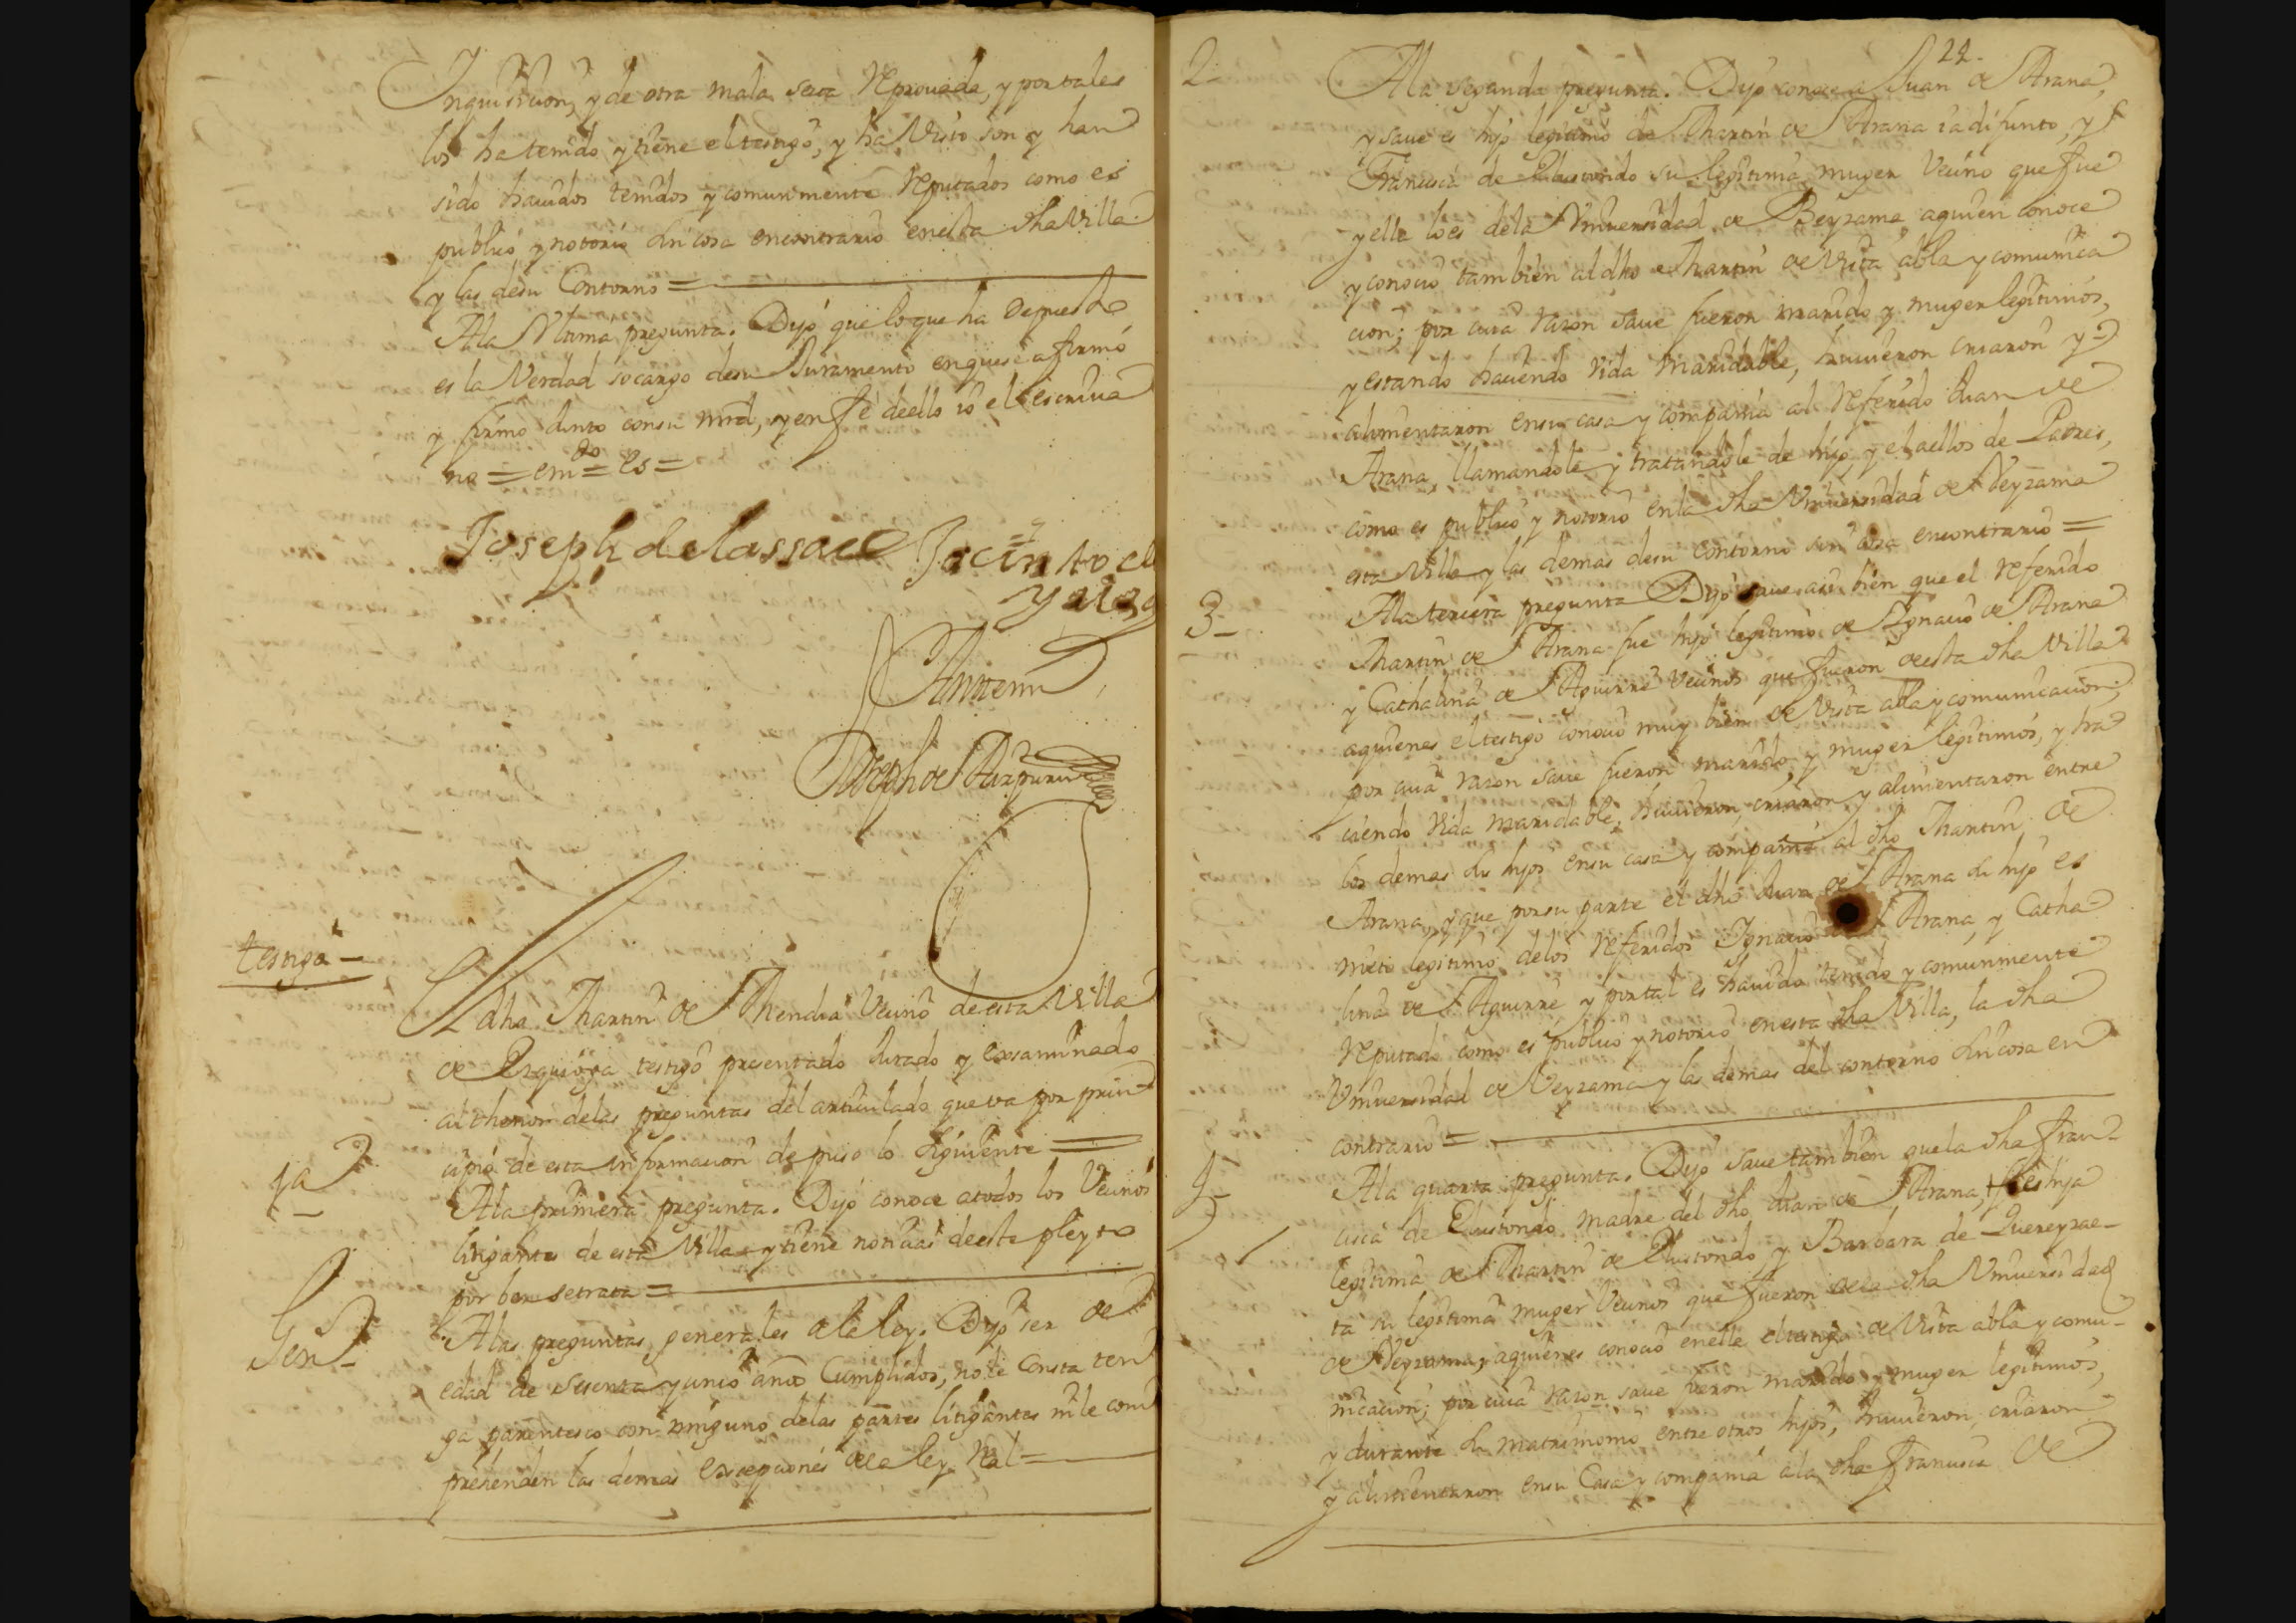 Inquisicion, y de otra mala secta reprovada, y por tales
los ha tenido y tiene el testigo, y ha visto son y han
sido havidos tenidos y comunmente reputados como es
publico y notorio sin cosa encontrario en esta dha Villa
y las de su Contorno =
A la Ultima pregunta. Dijo que lo que ha depuesto
es la Verdad so cargo de su Juramento en que se afirmó
y firmo Junto con su mrd, y en fe de ello io el escriva
no = em.do = es =
Joseph de lassa
Jacinto
Ante mi
Joseph de Aizpuru
testigo -
El dho Martin de Mendia Vecino de esta Villa
de Ezquioga testigo presentado Jurado y exsaminado
al thenor de las preguntas del articulado que va por prin-
cipio de esta informacion depuso lo Siguiente =
1a
A la primera pregunta. Dijo conoce a todos los Vecinos
litigantes de esta Villa y tiene noticias de este pleyto
por que se trata =
Gen.s
A las preguntas generales de la ley. Dijo ser de
edad de sesenta y cinco años Cumplidos, no le Consta ten
ga parentesco con ninguno de las partes litigantes ni le com
prehenden las demas excepciones de la ley Real =
24.
2-
A la segunda pregunta. Dijo conoce a Juan de Arana,
y save es hijo legitimo de Martin de Arana ia difunto, y
Francisca de Elustondo su legitima muger Vecino que fue
y ella lo es de la Universidad de Beyzama, a quien conoce
y conocio tambien al dho Martin de vista abla y comunica
cion; por cuia razon save fueron marido y muger legitimos,
y estando haciendo vida maridable, huvieron criaron y
alimentaron en su casa y compañia al referido Juan de
Arana, llamandole y tratandole de hijo, y el a ellos de Padres,
como es publico y notorio en la dha Universidad de Veyzama
esta Villa y las demas de su contorno sin cosa encontrario =
3-
A la tercera pregunta Dijo save asi bien que el referido
Martin de Arana fue hijo legitimo de Ygnacio de Arana
y Cathalina de Aguirre Vecinos que fueron de esta dha Villa
a quienes el testigo conocio muy bien de Vista abla y comunicacion;
por cuia razon save fueron marido y muger legitimos, y ha
ciendo vida maridable, huvieron, criaron y alimentaron entre
los demas Sus hijos en su casa y compañia al dho Martin de
Arana, y que por su parte el dho Juan de Arana Su hijo es
nieto legitimo de los referidos Ygnacio de Arana, y Catha
lina de Aguirre y por tal es havido tenido y comunmente
reputado como es publico y notorio en esta dha Villa, la dha
Universidad de Veyzama y las demas del contorno Sin cosa en
contrario =
4-
A la quarta pregunta. Dijo save tambien que la dha fran-
cisca de Elustondo madre del dho Juan de Arana, es hija
legitima de Martin de Elustondo y Barbara de Quereyzae-
ta su legitima muger Vecinos que fueron de la dha Universidad
de Veyzama, a quienes conocio en ella el testigo de Vista abla y comu-
nicacion; por cuia razon save fueron marido y muger legitimos,
y durante Su matrimonio entre otros hijos, huvieron, criaron
y alimentaron en su Casa y compañia a la dha francisca de